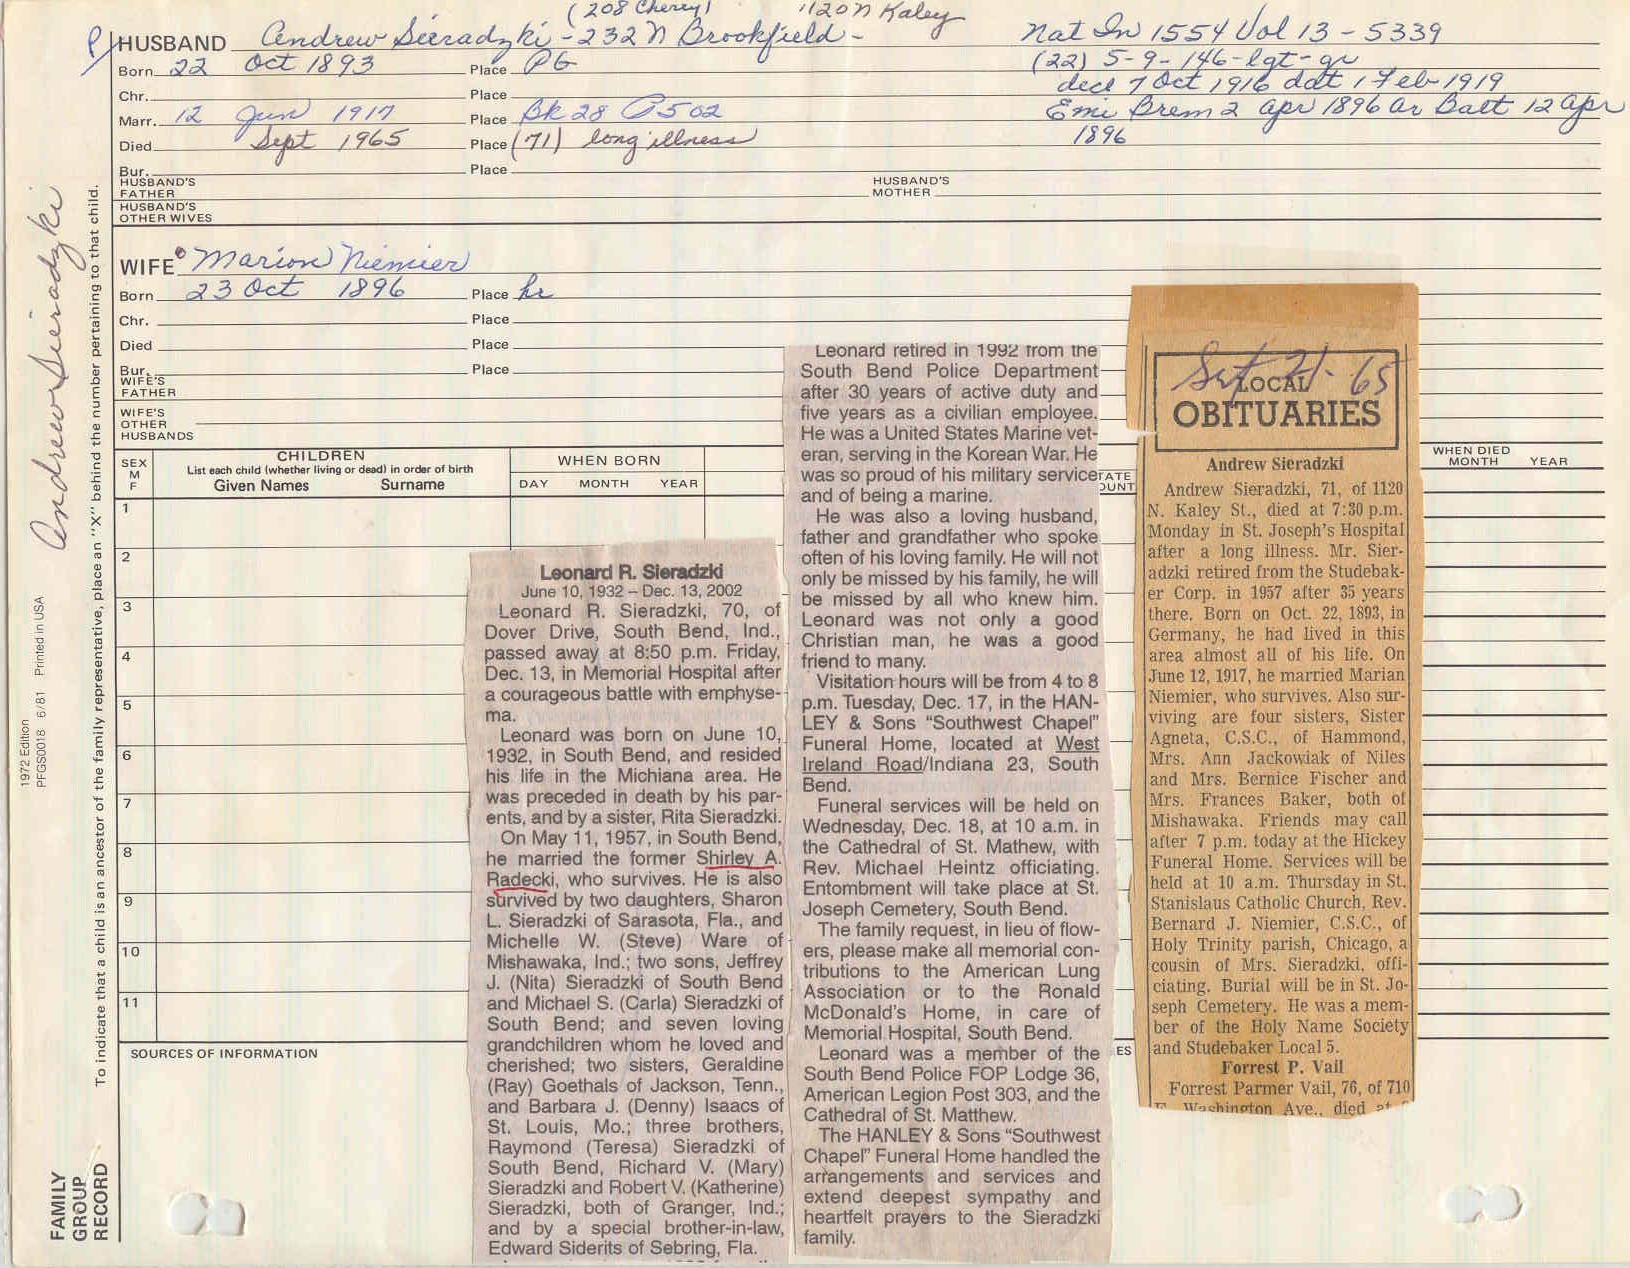 (208 Cherry) 1120 N Kaley
P HUSBAND Andrew Sieradzki - 232 N Brookfield - Nat In 1554 Vol 13 - 5339
Born 22 Oct 1893 Place PG (22) 5-9-146-lgt-gr
Chr. Place decl 7 Oct 1916 dat 1 Feb 1919
Marr. 12 Jun 1917 Place Bk 28 P502 Emi Brem 2 Apr 1896 Ar Balt 12 Apr
Died Sept 1965 Place (71) long illness 1896
Bur. Place
HUSBAND'S FATHER HUSBAND'S MOTHER
HUSBAND'S OTHER WIVES
WIFE Marion Niemier
Born 23 Oct 1896 Place hr
Chr. Place
Died Place
Bur. Place
WIFE'S FATHER
WIFE'S OTHER HUSBANDS
SEX M F
CHILDREN
List each child (whether living or dead) in order of birth
Given Names Surname
WHEN BORN
DAY MONTH YEAR
WHEN DIED
MONTH YEAR
1
2
3
4
5
6
7
8
9
10
11
SOURCES OF INFORMATION
Andrew Sieradzki
To indicate that a child is an ancestor of the family representative, place an "X" behind the number pertaining to that child.
1972 Edition
PFGS0018 6/81 Printed in USA
FAMILY
GROUP
RECORD
Leonard R. Sieradzki
June 10, 1932 – Dec. 13, 2002
Leonard R. Sieradzki, 70, of
Dover Drive, South Bend, Ind.,
passed away at 8:50 p.m. Friday,
Dec. 13, in Memorial Hospital after
a courageous battle with emphyse-
ma.
Leonard was born on June 10,
1932, in South Bend, and resided
his life in the Michiana area. He
was preceded in death by his par-
ents, and by a sister, Rita Sieradzki.
On May 11, 1957, in South Bend,
he married the former Shirley A.
Radecki, who survives. He is also
survived by two daughters, Sharon
L. Sieradzki of Sarasota, Fla., and
Michelle W. (Steve) Ware of
Mishawaka, Ind.; two sons, Jeffrey
J. (Nita) Sieradzki of South Bend
and Michael S. (Carla) Sieradzki of
South Bend; and seven loving
grandchildren whom he loved and
cherished; two sisters, Geraldine
(Ray) Goethals of Jackson, Tenn.,
and Barbara J. (Denny) Isaacs of
St. Louis, Mo.; three brothers,
Raymond (Teresa) Sieradzki of
South Bend, Richard V. (Mary)
Sieradzki and Robert V. (Katherine)
Sieradzki, both of Granger, Ind.;
and by a special brother-in-law,
Edward Siderits of Sebring, Fla.
Leonard retired in 1992 from the
South Bend Police Department
after 30 years of active duty and
five years as a civilian employee.
He was a United States Marine vet-
eran, serving in the Korean War. He
was so proud of his military service
and of being a marine.
He was also a loving husband,
father and grandfather who spoke
often of his loving family. He will not
only be missed by his family, he will
be missed by all who knew him.
Leonard was not only a good
Christian man, he was a good
friend to many.
Visitation hours will be from 4 to 8
p.m. Tuesday, Dec. 17, in the HAN-
LEY & Sons “Southwest Chapel”
Funeral Home, located at West
Ireland Road/Indiana 23, South
Bend.
Funeral services will be held on
Wednesday, Dec. 18, at 10 a.m. in
the Cathedral of St. Mathew, with
Rev. Michael Heintz officiating.
Entombment will take place at St.
Joseph Cemetery, South Bend.
The family request, in lieu of flow-
ers, please make all memorial con-
tributions to the American Lung
Association or to the Ronald
McDonald's Home, in care of
Memorial Hospital, South Bend.
Leonard was a member of the
South Bend Police FOP Lodge 36,
American Legion Post 303, and the
Cathedral of St. Matthew.
The HANLEY & Sons “Southwest
Chapel” Funeral Home handled the
arrangements and services and
extend deepest sympathy and
heartfelt prayers to the Sieradzki
family.
Sept 21 - 65
LOCAL
OBITUARIES
Andrew Sieradzki
Andrew Sieradzki, 71, of 1120
N. Kaley St., died at 7:30 p.m.
Monday in St. Joseph's Hospital
after a long illness. Mr. Sier-
adzki retired from the Studebak-
er Corp. in 1957 after 35 years
there. Born on Oct. 22, 1893, in
Germany, he had lived in this
area almost all of his life. On
June 12, 1917, he married Marian
Niemier, who survives. Also sur-
viving are four sisters, Sister
Agneta, C.S.C., of Hammond,
Mrs. Ann Jackowiak of Niles
and Mrs. Bernice Fischer and
Mrs. Frances Baker, both of
Mishawaka. Friends may call
after 7 p.m. today at the Hickey
Funeral Home. Services will be
held at 10 a.m. Thursday in St.
Stanislaus Catholic Church, Rev.
Bernard J. Niemier, C.S.C., of
Holy Trinity parish, Chicago, a
cousin of Mrs. Sieradzki, offi-
ciating. Burial will be in St. Jo-
seph Cemetery. He was a mem-
ber of the Holy Name Society
and Studebaker Local 5.
Forrest P. Vail
Forrest Parmer Vail, 76, of 710
E. Washington Ave., died at